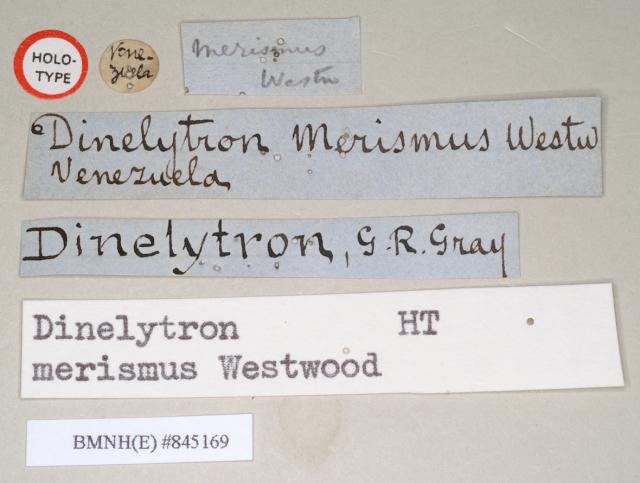 HOLO-
TYPE
Vene-
zuela
Merismus
Westw
Dinelytron Merismus Westw
Venezuela
Dinelytron, G. R. Gray
Dinelytron HT
merismus Westwood
BMNH(E) #845169